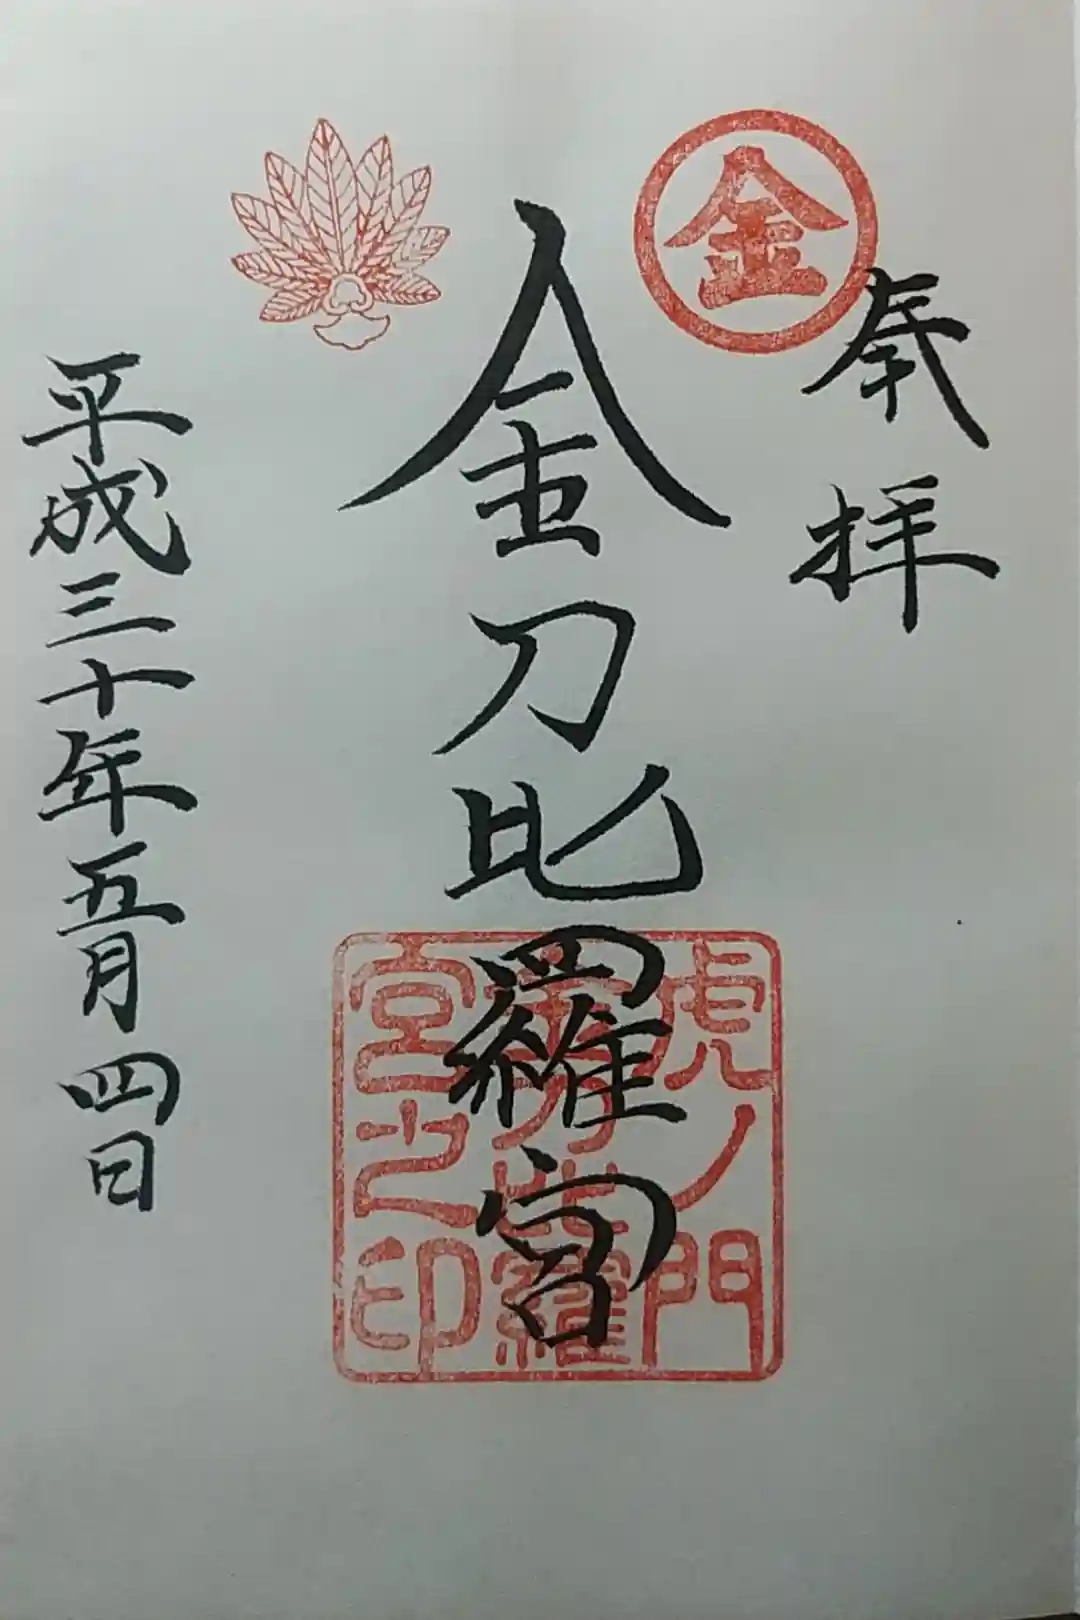 金
奉拝
金刀比羅宮
虎ノ門
金刀比羅
宮之印
平成三十年五月四日